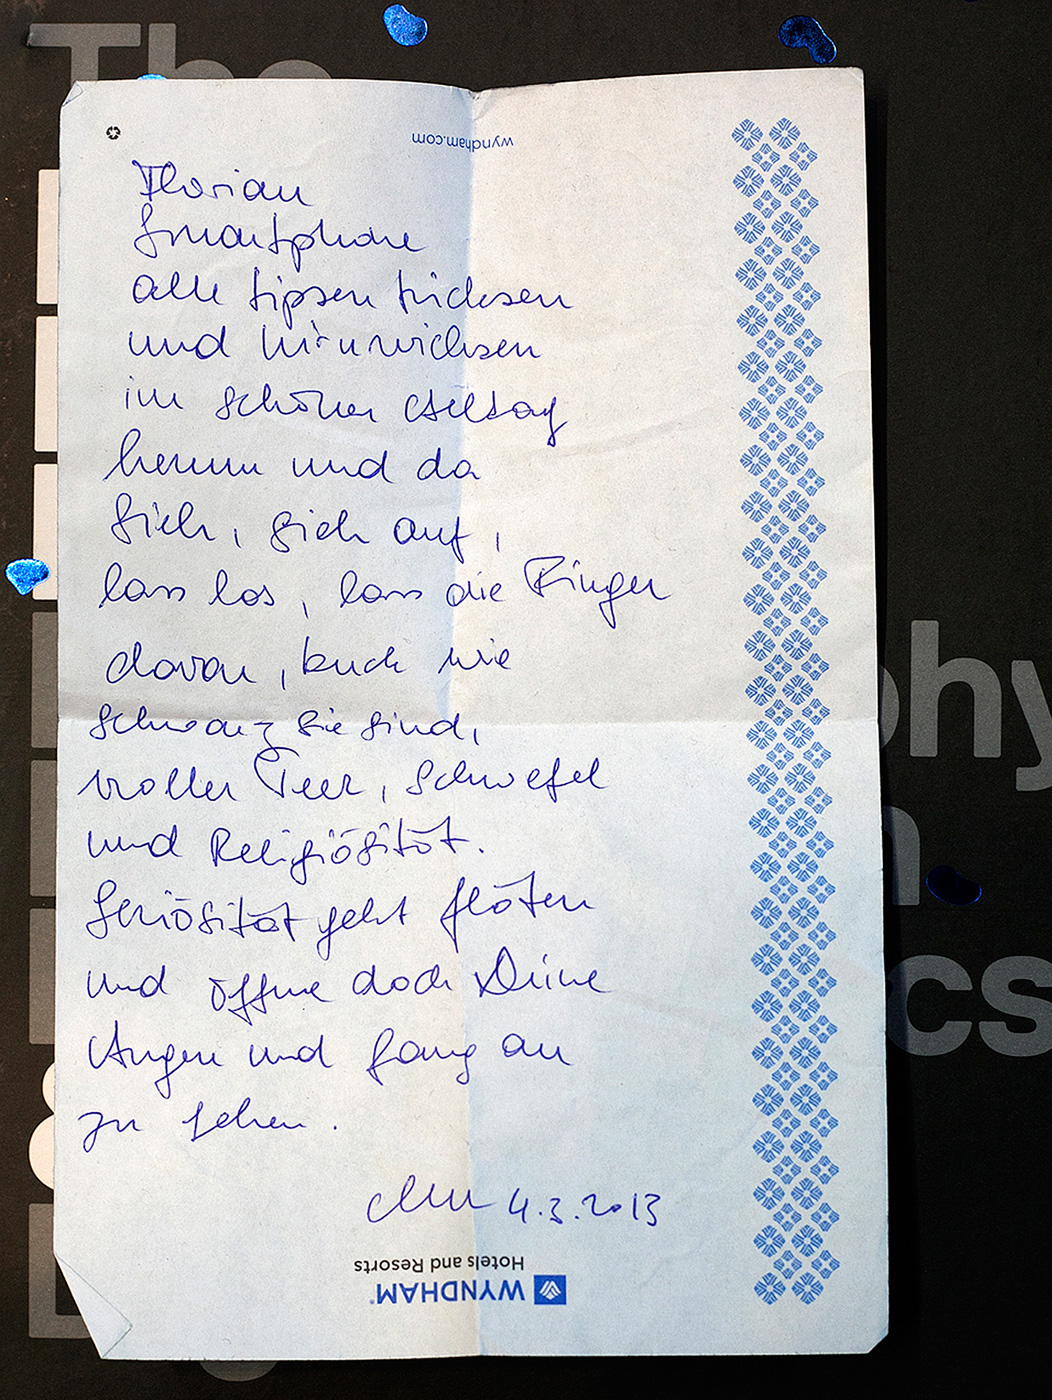 The
wyndham.com
Florian
Smartphone
alle tipsen tricksen
und hirnwichsen
im schönen Alltag
herum und da
sieh, sieh auf,
lass los, lass die Finger
davon, kuck wie
schwarz sie sind,
voller Teer, Schwefel
und Religiösität.
Seriösität geht flöten
und öffne doch Deine
Augen und fang an
zu sehen.
4.3.2013
WYNDHAM®
Hotels and Resorts